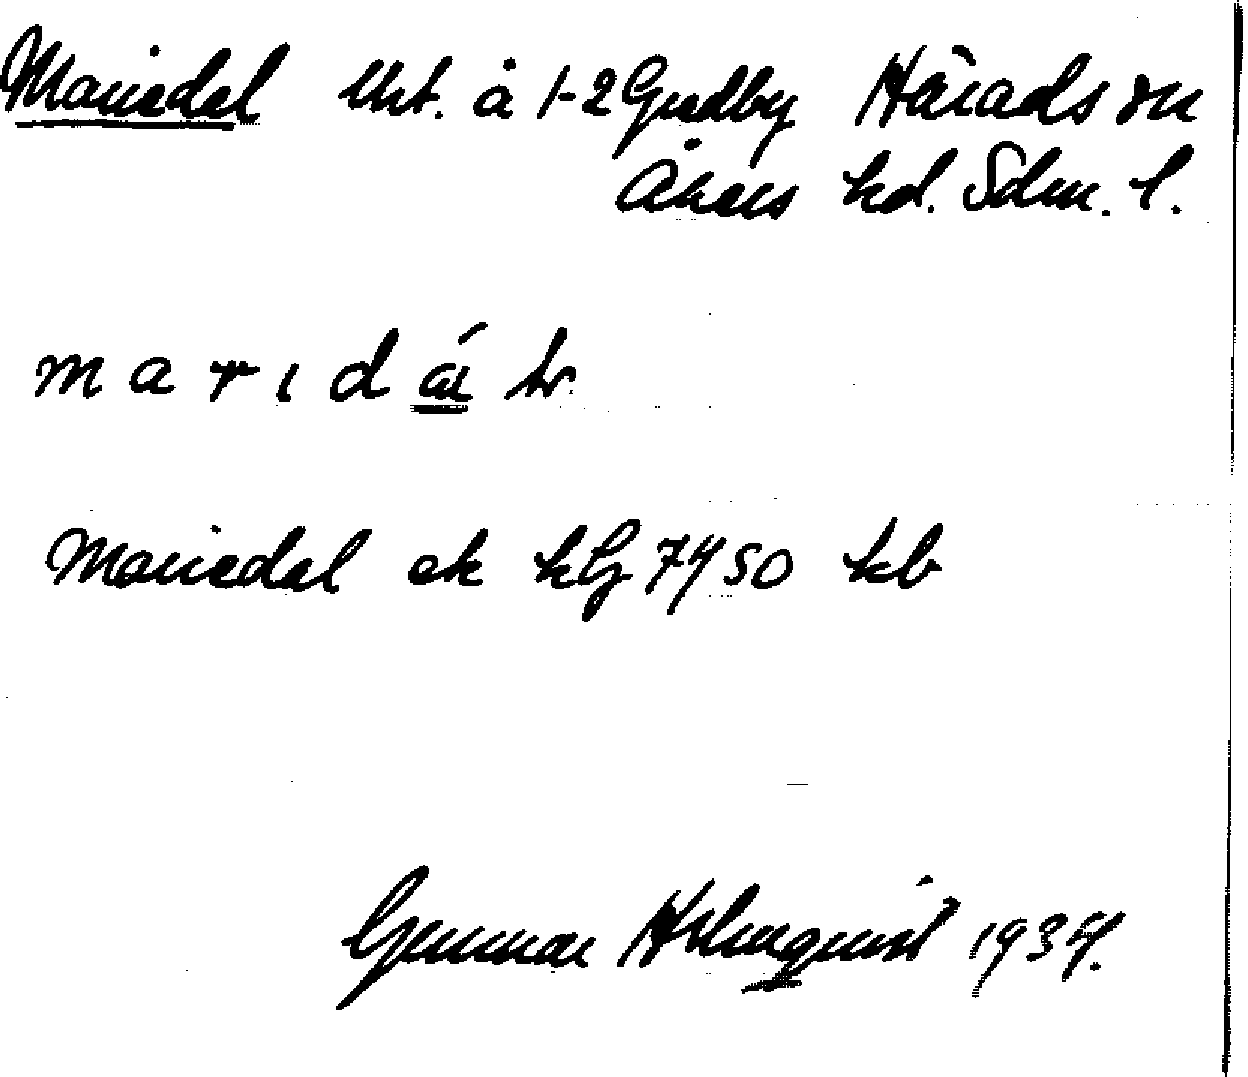 Mariedal lht. å 1-2 Gudby Härads sn
Åkers hd. Sdm. l.
m a r ɩ d á
Mariedal ek kbl 7450 kb
Gunnar Holmqvist 1934.